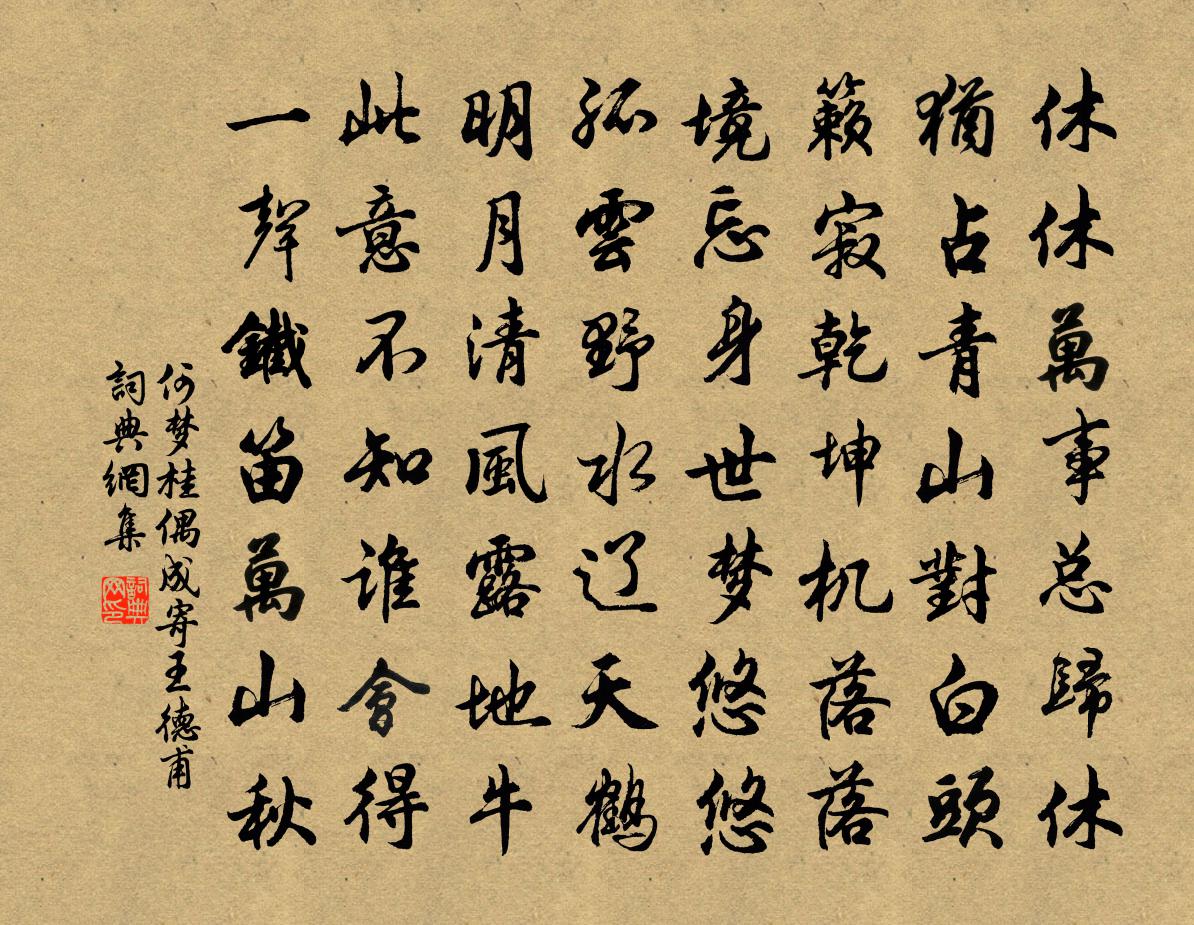 休休萬事总歸休
猶占青山對白頭
籟寂乾坤机落落
境忘身世梦悠悠
孤雲野水辽天鹤
明月清風露地牛
此意不知谁會得
一聲鐵笛萬山秋
何梦桂偶成寄王德甫
詞典網集
詞典网印